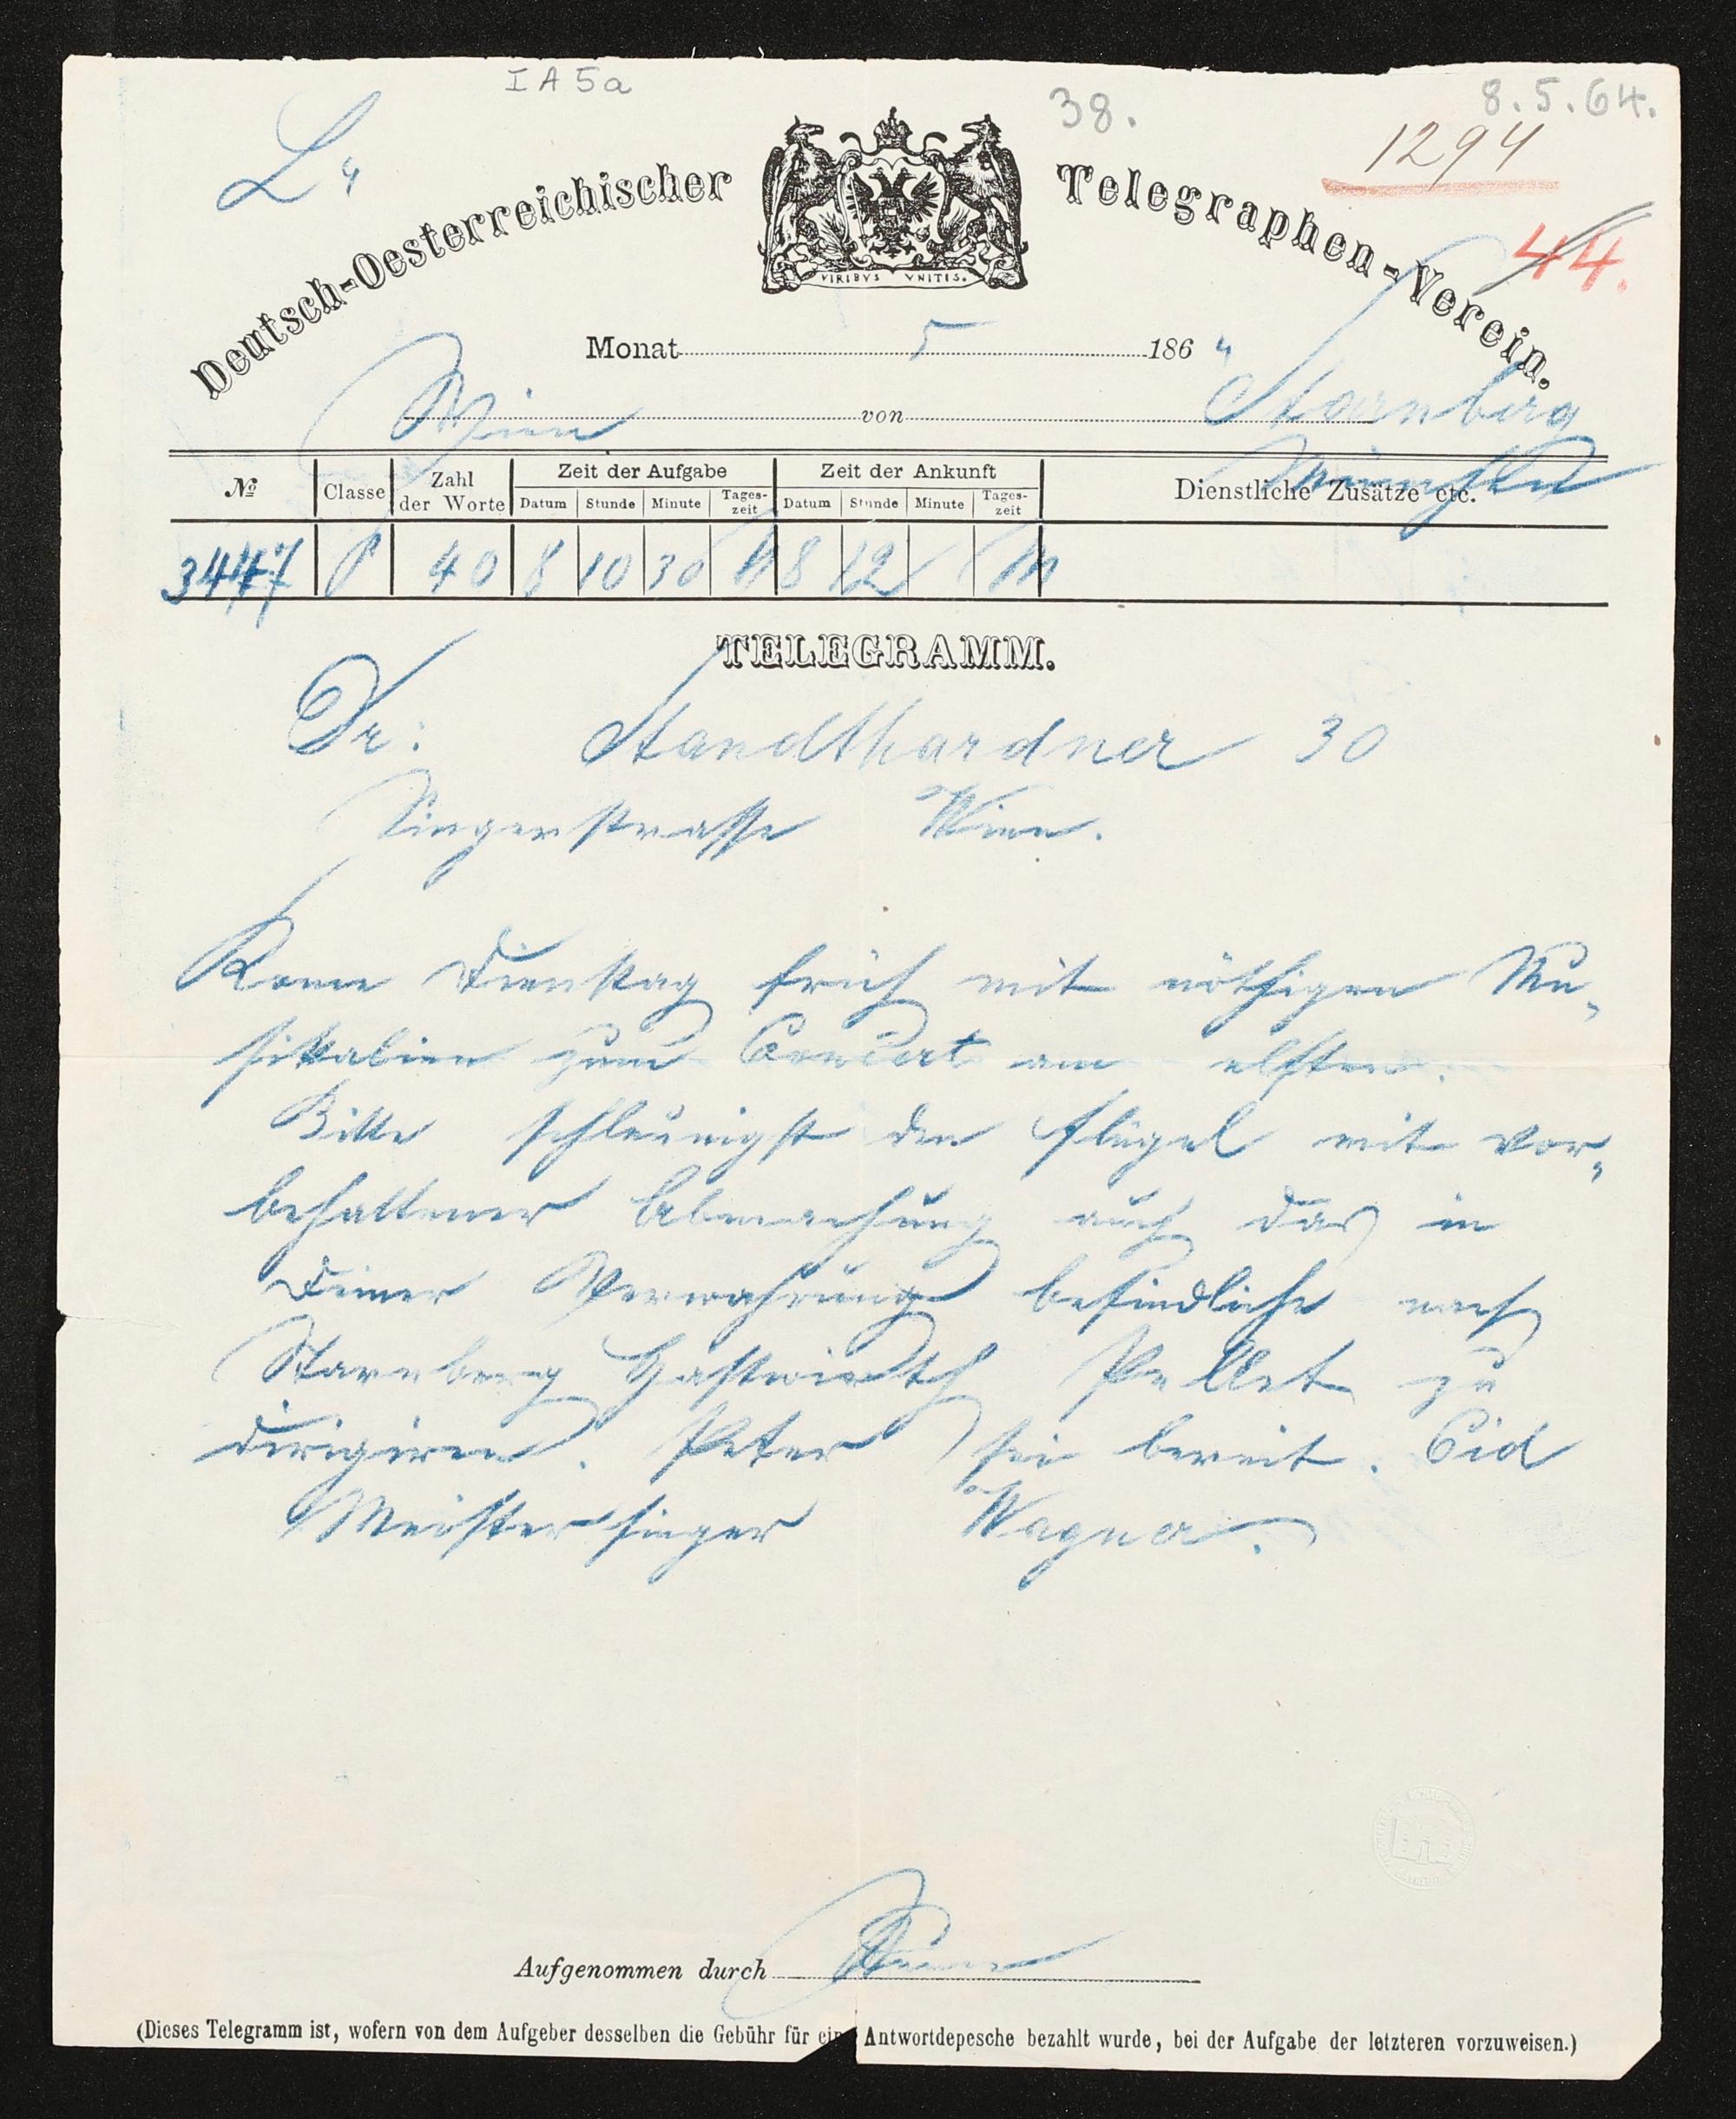 IA5a
38.
8.5.64.
1294
44.
Deutsch-Oesterreichischer Telegraphen-Verein.
VIRIBVS VNITIS.
Monat 5 1864
Wien von Starnberg
München
No Classe Zahl der Worte Zeit der Aufgabe Zeit der Ankunft Dienstliche Zusätze etc.
Datum Stunde Minute Tages-zeit Datum Stunde Minute Tages-zeit
3447 P 40 8 10 30 8 12 M
TELEGRAMM.
Dr: Standthardner 30
Singerstrasse Wien.
Kome Dienstag früh mit nöthigen Mu-
sikalien zum Concert am elften.
Bitte schleunigst den Flügel mit vor-
behaltener Abmachung auch das in
Deiner Verwahrung befindliche nach
Starnberg Gastwirth Pellet zu
dirigiren. Peter sei bereit. Cid
Meistersinger Wagner.
Aufgenommen durch
(Dieses Telegramm ist, wofern von dem Aufgeber desselben die Gebühr für eine Antwortdepesche bezahlt wurde, bei der Aufgabe der letzteren vorzuweisen.)